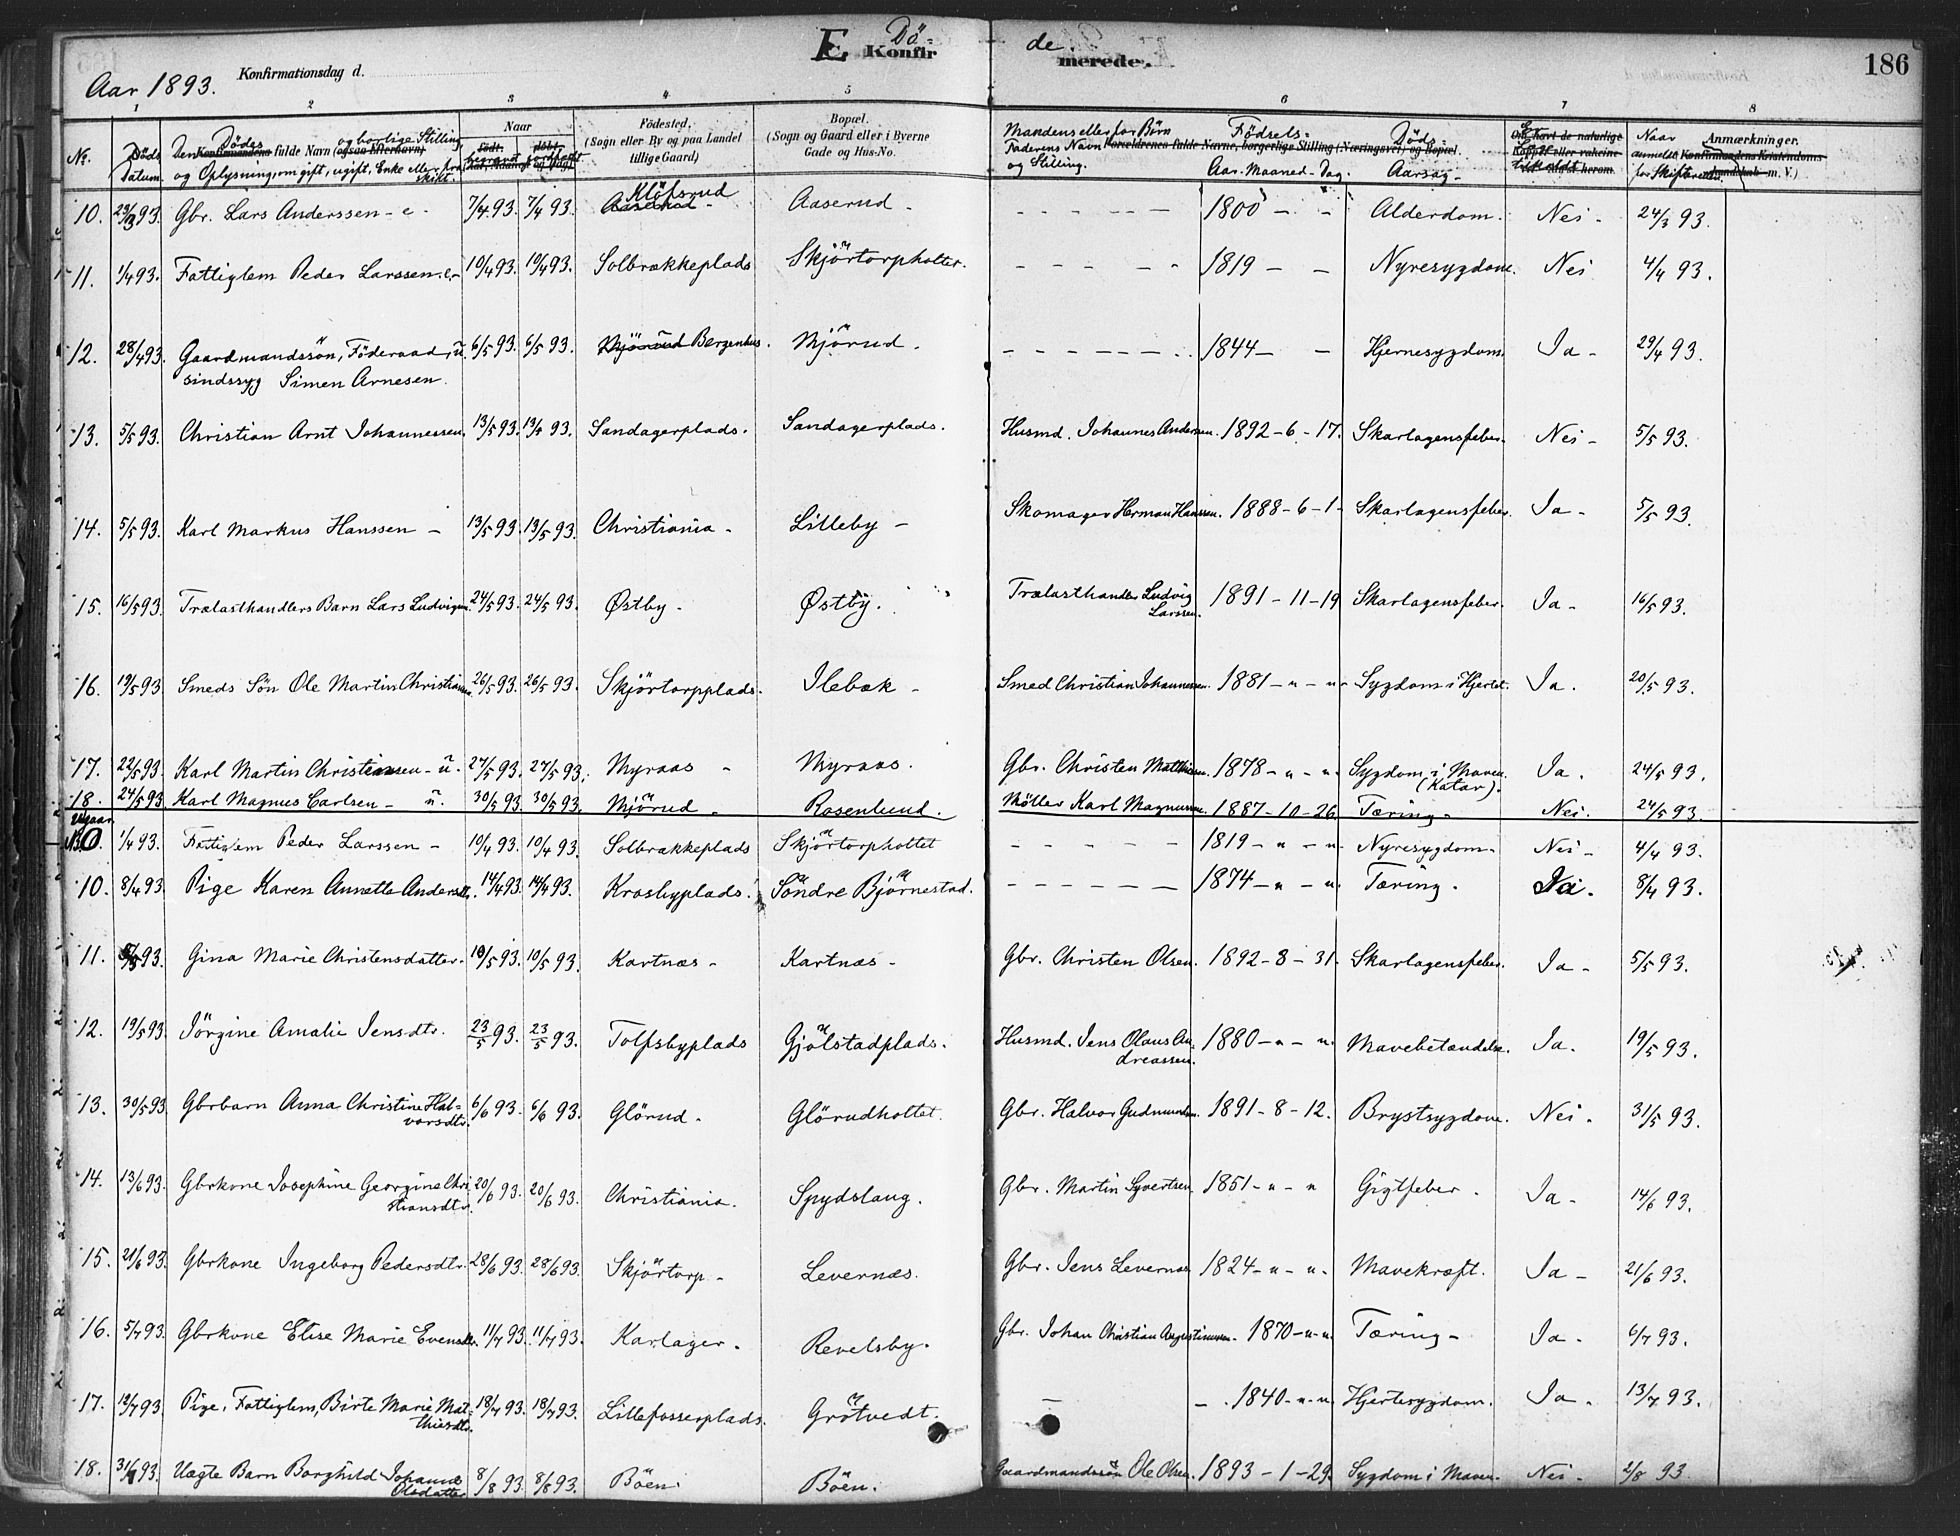 E Dö- de. 186
Aar 1893. Konfirmationsdag d. Konfir merede.
1 2 3 4 5 6 7 8
No. Döds Datum. Den Dödes fulde Navn (ogsaa Efternavn) og borlige Stilling, og Oplysning, om gift, ugift, Enke eller fraskilt. Naar födt. döbt. Födested. (Sogn eller By og paa Landet tillige Gaard) Bopæl. (Sogn og Gaard eller i Byerne Gade og Hus-No. Mandens eller for Börn Faderens Navn og Stilling. Forældrenes fulde Navne, borgerlige Stilling (Næringsvei) og Bopæl. Födsels- Aar. Maaned- Dag. Döds Aarsag- Naar anmeldt for Skifteretten. Anmærkninger. Konfirmandens Kristendoms- Kundskab m. V.)
10. 23/3 93. Gbr. Lars Anderssen - e - 7/4 93. 7/4 93. Aaserud Klöfsrud - Aaserud - - - - - - 1800 - - Alderdom. Nei - 24/3 93.
11. 1/4 93. Fattiglem Peder Larssen. e. - 10/4 93. 10/4 93. Solbrækkeplads Skjörtorpholtet. - - - - - 1819 - - Nyresygdom. Nei 4/4 93.
12. 28/4 93. Gaardmandssön, Föderaad, u. 6/5 93. 6/5 93. Mjörud Bergenhus. Mjörud. - - - - - - 1844 - - Hjernesygdom. Ja - 29/4 93.
sindssyg Simen Arnesen.
13. 5/5 93. Christian Arnt Johannessen. 13/5 93. 13/5 93. Sandagerplads. Sandagerplads. Husmd. Johannes Andersen. 1892 - 6 - 17. Skarlagensfeber. Nei - 5/5 93.
14. 5/5 93. Karl Markus Hanssen - 13/5 93. 13/5 93. Christiania - Lilleby - Skomager Herman Hanssen. 1888 - 6 - 1 - Skarlagensfeber. Ja - 5/5 93.
15. 16/5 93. Trælasthandlers Barn Lars Ludvigsen. 24/5 93. 24/5 93. Østby - Østby. Trælasthandler Ludvig Larssen. 1891 - 11 - 19 Skarlagensfeber. Ja - 16/5 93.
16. 19/5 93. Smeds Sön Ole Martin Christiansen. 26/5 93. 26/5 93. Skjörtorpplads. Ilebæk - Smed Christian Johannessen. 1881 - " - " - Sygdom i Hjertet. Ja. 20/5 93.
17. 22/5 93. Karl Martin Christiansen - u. 27/5 93. 27/5 93. Myraas - Myraas. Gbr. Christen Matthissen. 1878 - " - ". Sygdom i Maven (Katar). Ja. 24/5 93.
18. 24/5 93 Karl Magnus Carlsen - u. 30/5 93. 30/5 93. Mjörud - Rosenlund. Möller Karl Magnussen. 1887 - 10 - 26 Tæring - Nei. 24/5 93.
1/4 93. Fattiglem Peder Larssen - 10/4 93. 10/4 93. Solbrækkeplads Skjörtorpholtet - - - - - 1819 - " - ". Nyresygdom - Nei - 4/4 93.
10. 8/4 93. Pige Karen Annette Andersdtr. 14/4 93. 14/4 93. Krosbyplads. Söndre Björnestad. - - - - - - 1874 - " - ". Tæring. Ja. 8/4 93.
11. 5/5 93. Gina Marie Christensdatter. 10/5 93. 10/5 93. Kartnæs - Kartnæs - Gbr. Christen Olsen. 1892 - 8 - 31. Skarlagensfeber. Ja - 5/5 93.
12. 19/5 93. Jörgine Amalie Jensdtr. 23/5 93. 23/5 93. Tolfsbyplads Gjölstadplads. Husmd. Jens Olaus Andreassen. 1880 - " - ". Mavebetændelse. Ja. 19/5 93.
13. 30/5 93 Gbrbarn Anna Christine Halvorsdtr. 6/6 93. 6/6 93. Glörud - Glörudholtet. Gbr. Halvor Gudmundsen. 1891 - 8 - 12. Brystsygdom. Nei - 31/5 93.
14. 13/6 93. Gbrkone Josephine Georgine Christiansdtr. 20/6 93. 20/6 93. Christiania. Spydslaug. Gbr. Martin Syvertsen. 1851 - " - " Gigtfeber. Ja - 14/6 93.
15. 21/6 93. Gbrkone Ingeborg Pedersdtr. 28/6 93. 28/6 93. Skjörtorp - Levernæs. Gbr. Jens Levernæs 1824 - " - ". Mavekræft. Ja - 21/6 93.
16. 5/7 93. Gbrkone Elise Marie Evensdtr. 11/7 93. 11/7 93. Karlager. Revelsby. Gbr. Johan Christian Augustinussen. 1870 - " - ". Tæring - Ja - 6/7 93.
17. 12/7 93. Pige, Fattiglem, Birte Marie Matthisdtr. 18/7 93. 18/7 93. Lillefosserplads. Grötvedt. - - 1840 - " - ". Hjertesygdom. Ja - 13/7 93.
18. 31/7 93. Uægte Barn Borghild Johanne Olsdatter 8/8 93. 8/8 93. Böen. Böen. Gaardmandssön Ole Olsen. 1893 - 1 - 29. Sygdom i Maven - Nei - 2/8 93